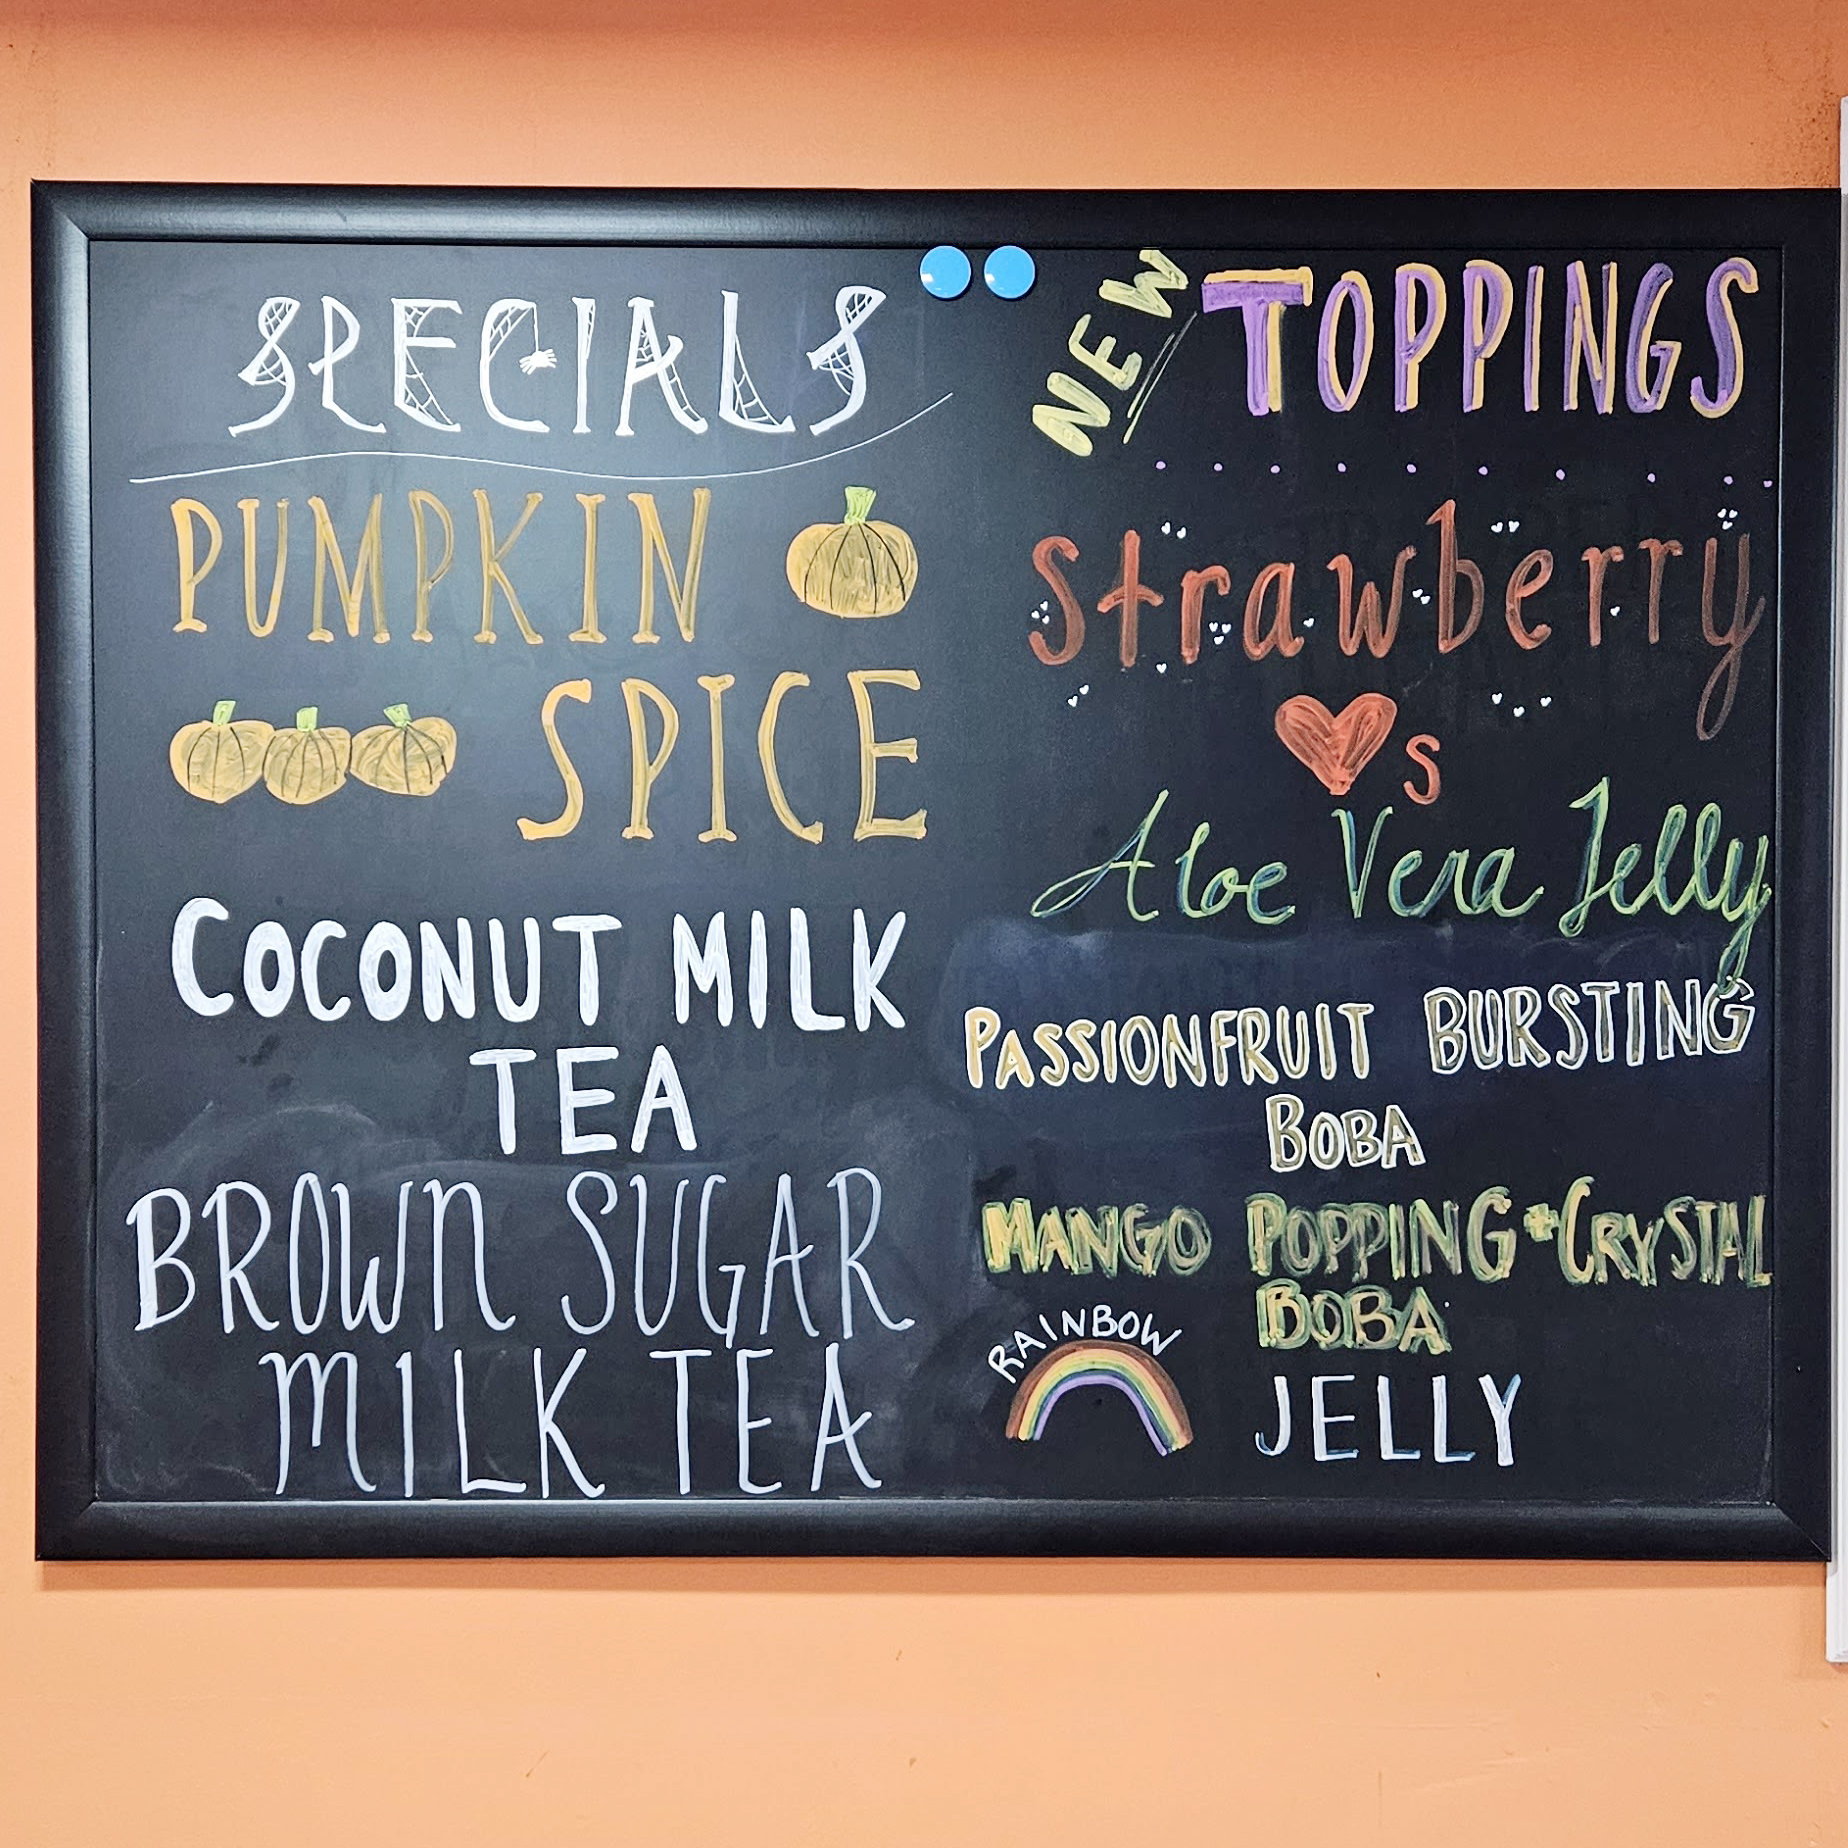 SPECIALS
PUMPKIN
SPICE
COCONUT MILK
TEA
BROWN SUGAR
MILK TEA
NEW TOPPINGS
Strawberry
♥s
Aloe Vera Jelly
PASSIONFRUIT BURSTING
BOBA
MANGO POPPING + CRYSTAL
BOBA
RAINBOW
JELLY